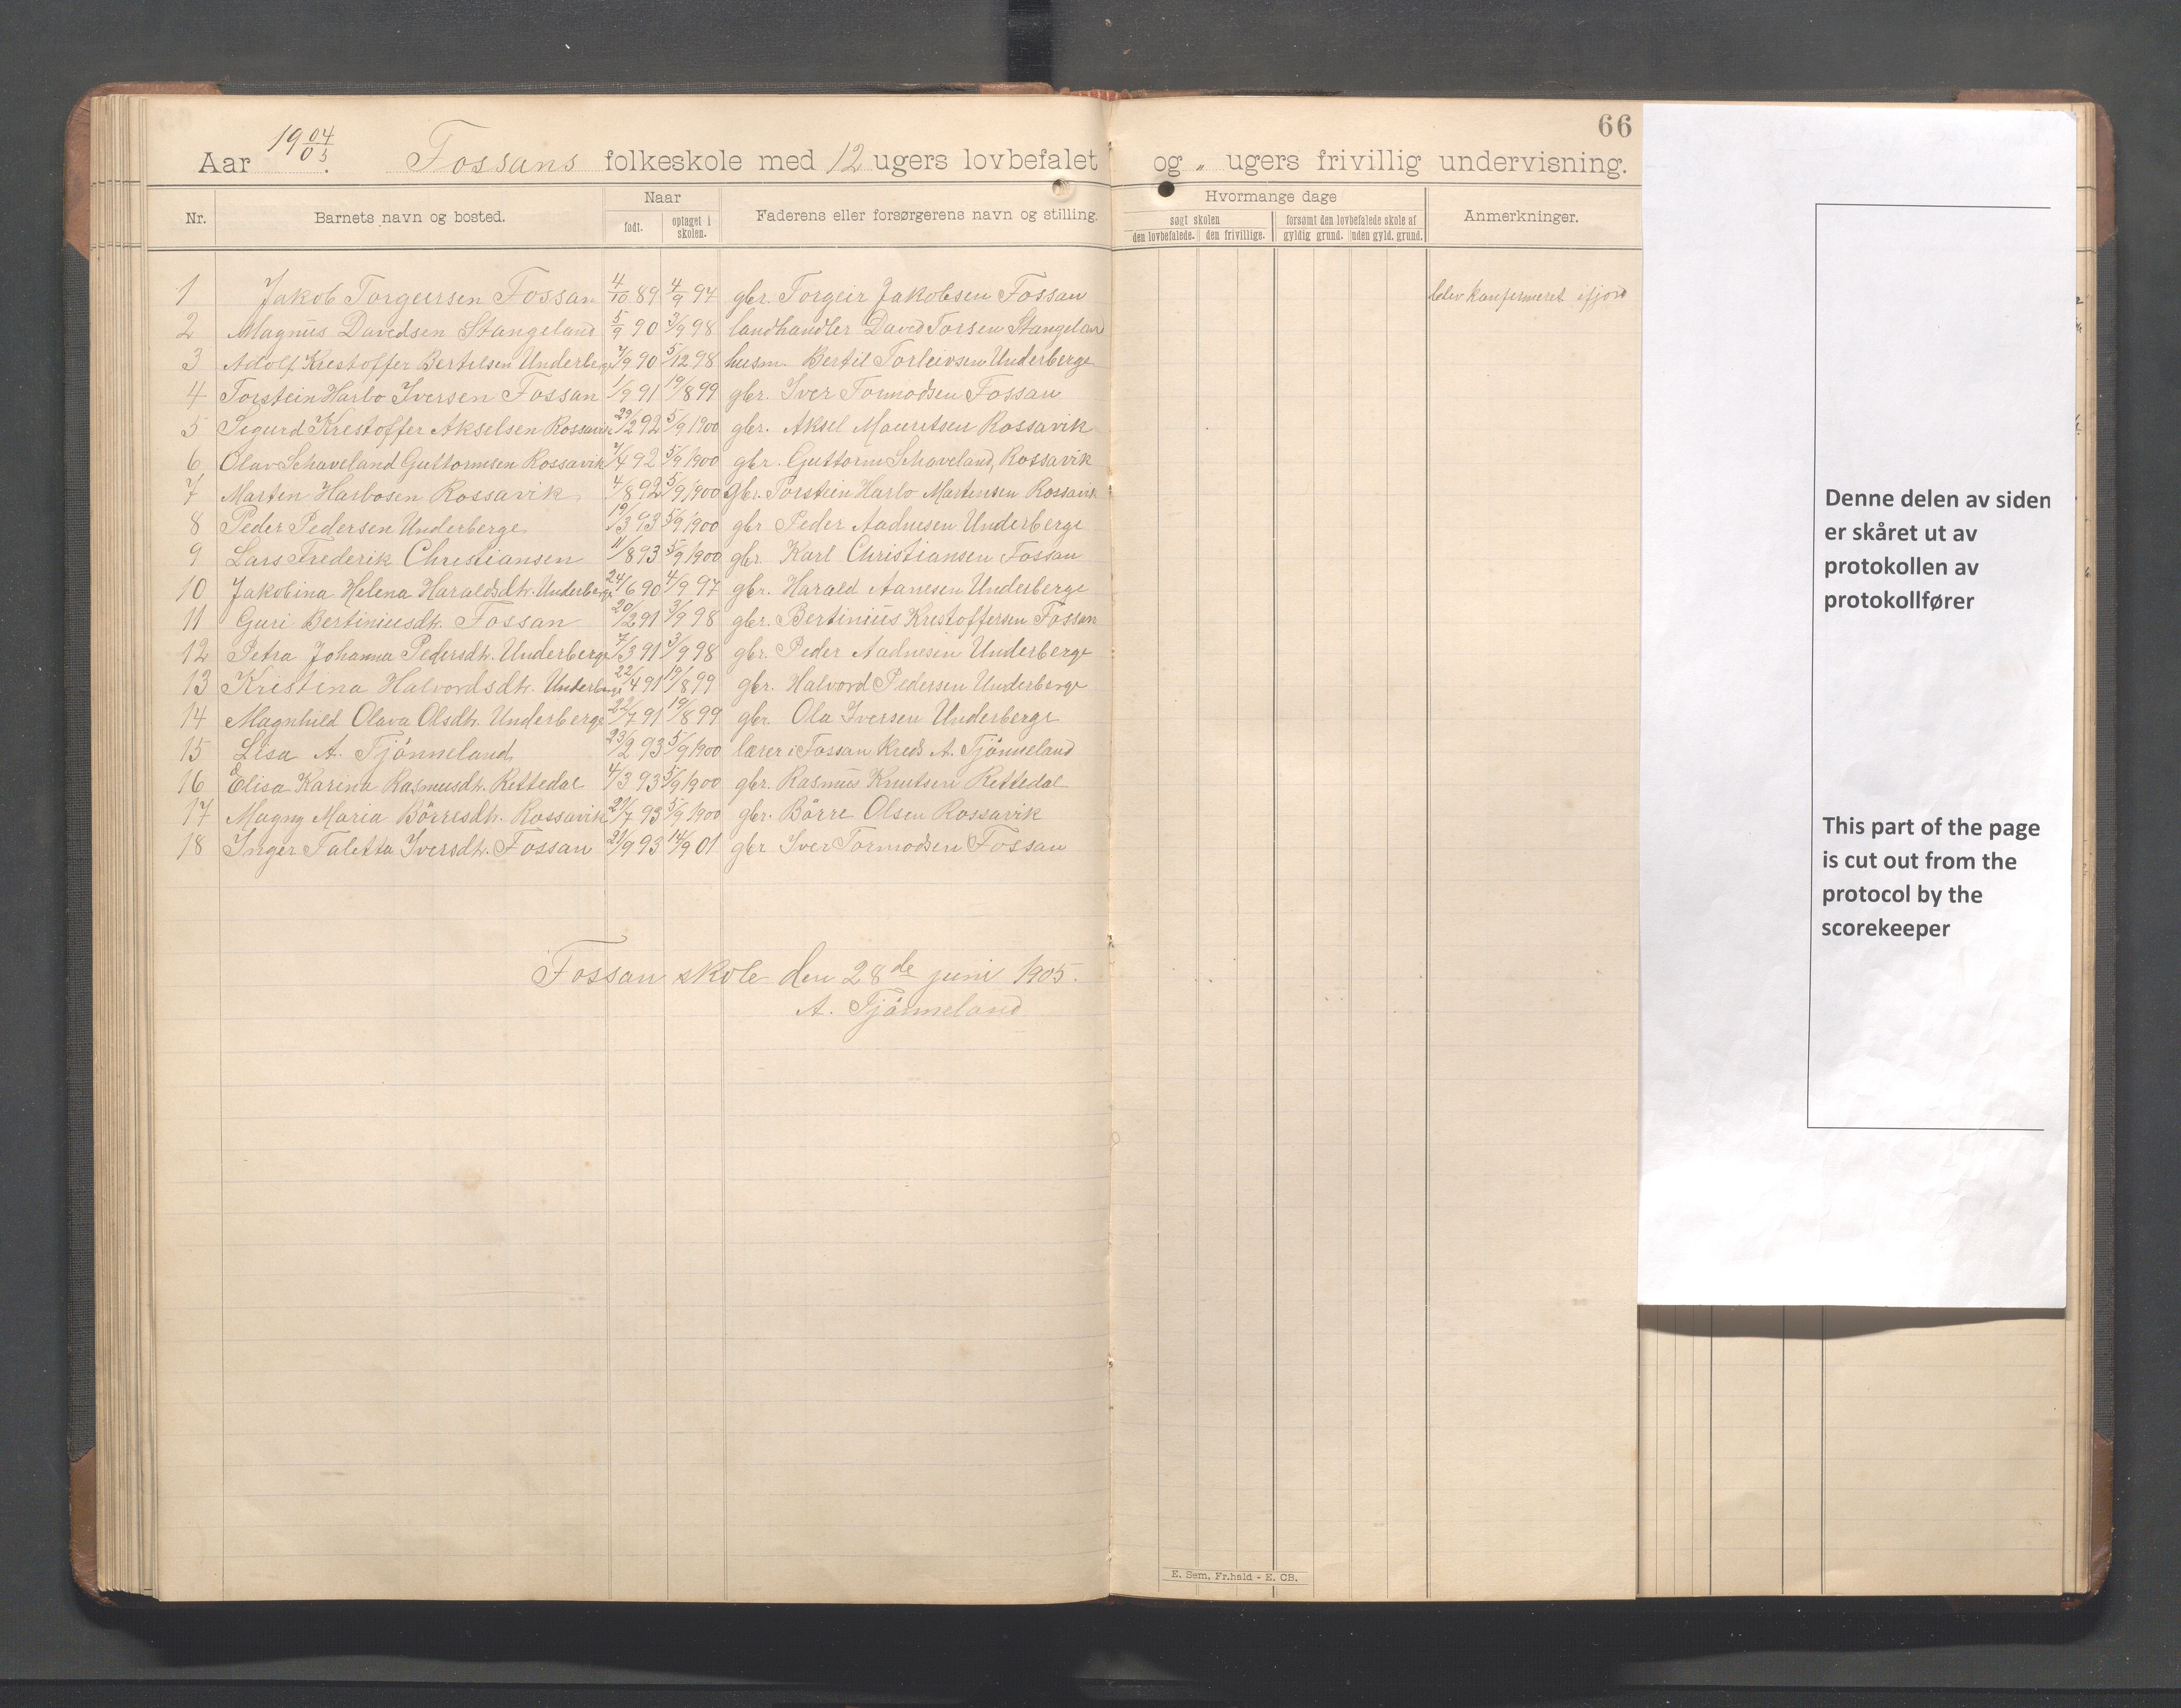 66
Aar 19 04/05. Fossans folkeskole med 12 ugers lovbefalet og „ ugers frivillig undervisning.
Nr. Barnets navn og bosted. Naar født. optaget i skolen. Faderens eller forsørgerens navn og stilling. Hvormange dage søgt skolen den lovbefalede. den frivillige. forsømt den lovbefalede skole af gyldig grund. uden gyld. grund. Anmerkninger.
1 Jakob Torgeirsen Fossan 4/10 89 4/9 97 gbr. Torgeir Jakobsen Fossan blev konfirmeret ifjor
2 Magnus Davedsen Stangeland 5/9 90 3/9 98 landhandler Daved Torsen Stangeland
3 Adolf Krestoffer Bertelsen Underberge 7/9 90 5/12 98 husm. Bertil Torleivsen Underberge
4 Torstein Harbo Iversen Fossan 1/9 91 19/8 99 gbr. Iver Tormodsen Fossan
5 Sigurd Krestoffer Akselsen Rossavik 29/2 92 5/9 1900 gbr. Aksel Mauritsen Rossavik
6 Olav Schaveland Guttormsen Rossavik 7/4 92 5/9 1900 gbr. Guttorm Schaveland, Rossavik
7 Martin Harbosen Rossavik 4/8 92 5/9 1900 gbr. Torstein Harbo Martinsen Rossavik
8 Peder Pedersen Underberge 19/3 93 5/9 1900 gbr Peder Aadnesen Underberge
9 Lars Frederik Christiansen 11/8 93 5/9 1900 gbr. Karl Christiansen Fossan
10 Jakobina Helena Haraldsdtr. Underberge 24/6 90 4/9 97 gbr. Harald Aanesen Underberge
11 Guri Bertiniusdtr. Fossan 20/2 91 3/9 98 gbr. Bertinius Krestoffersen Fossan
12 Petra Johanna Pedersdtr. Underberge 7/3 91 3/9 98 gbr. Peder Aadnesen Underberge
13 Kristina Halvordsdtr. Underberge 22/4 91 19/8 99 gbr. Halvord Pedersen Underberge
14 Magnhild Olava Olsdtr. Underberge 22/7 91 19/8 99 gbr. Ola Iversen Underberge
15 Lisa A. Tjönneland 23/2 93 5/9 1900 lærer i Fossan Kreds A. Tjönneland
16 Elisa Karina Rasmusdtr. Rettedal 4/3 93 5/9 1900 gbr. Rasmus Knutsen Rettedal
17 Magny Maria Börresdtr. Rossavik 21/7 93 5/9 1900 gbr. Börre Olsen Rossavik
18 Inger Taletta Iversdtr. Fossan 21/9 93 14/9 01 gbr Iver Tormodsen Fossan
Fossan skole den 28de juni 1905.
A. Tjönneland
E. Sem, Fr.hald - E. CB.
Denne delen av siden
er skåret ut av
protokollen av
protokollfører
This part of the page
is cut out from the
protocol by the
scorekeeper